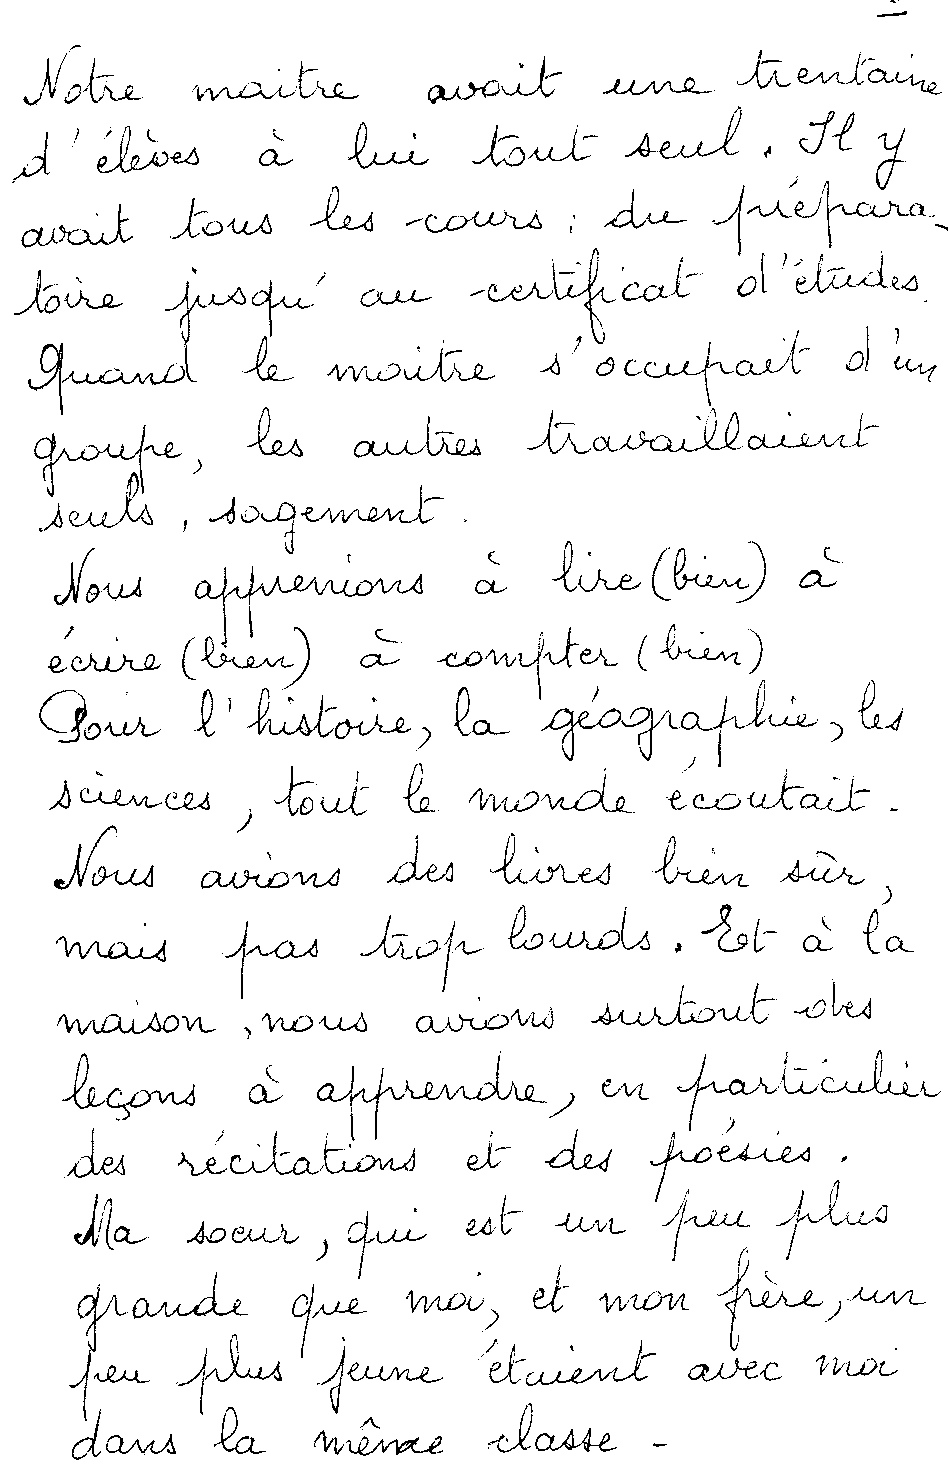 Notre maitre avait une trentaine
d'élèves à lui tout seul. Il y
avait tous les cours : du prépara-
toire jusqu'au certificat d'études.
Quand le maitre s'occupait d'un
groupe, les autres travaillaient
seuls, sagement.
Nous apprenions à lire (bien) à
écrire (bien) à compter (bien)
Pour l'histoire, la géographie, les
sciences, tout le monde écoutait.
Nous avions des livres bien sûr,
mais pas trop lourds. Et à la
maison, nous avions surtout des
leçons à apprendre, en particulier
des récitations et des poésies.
Ma soeur, qui est un peu plus
grande que moi, et mon frère, un
peu plus jeune étaient avec moi
dans la même classe -